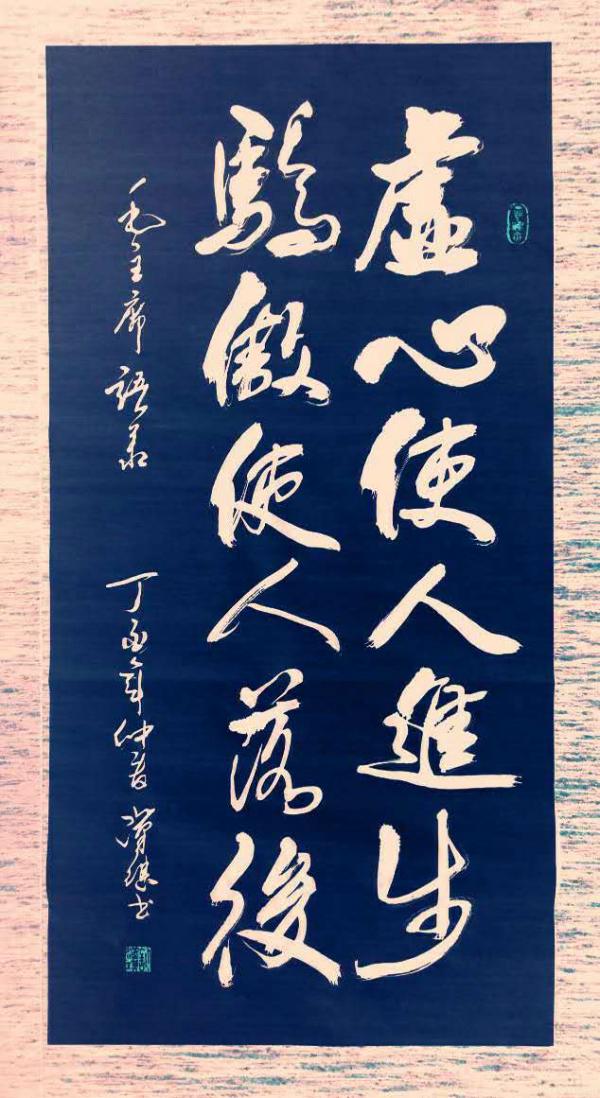 虛心使人進步
驕傲使人落後
毛主席語录
丁亥年仲夏 書